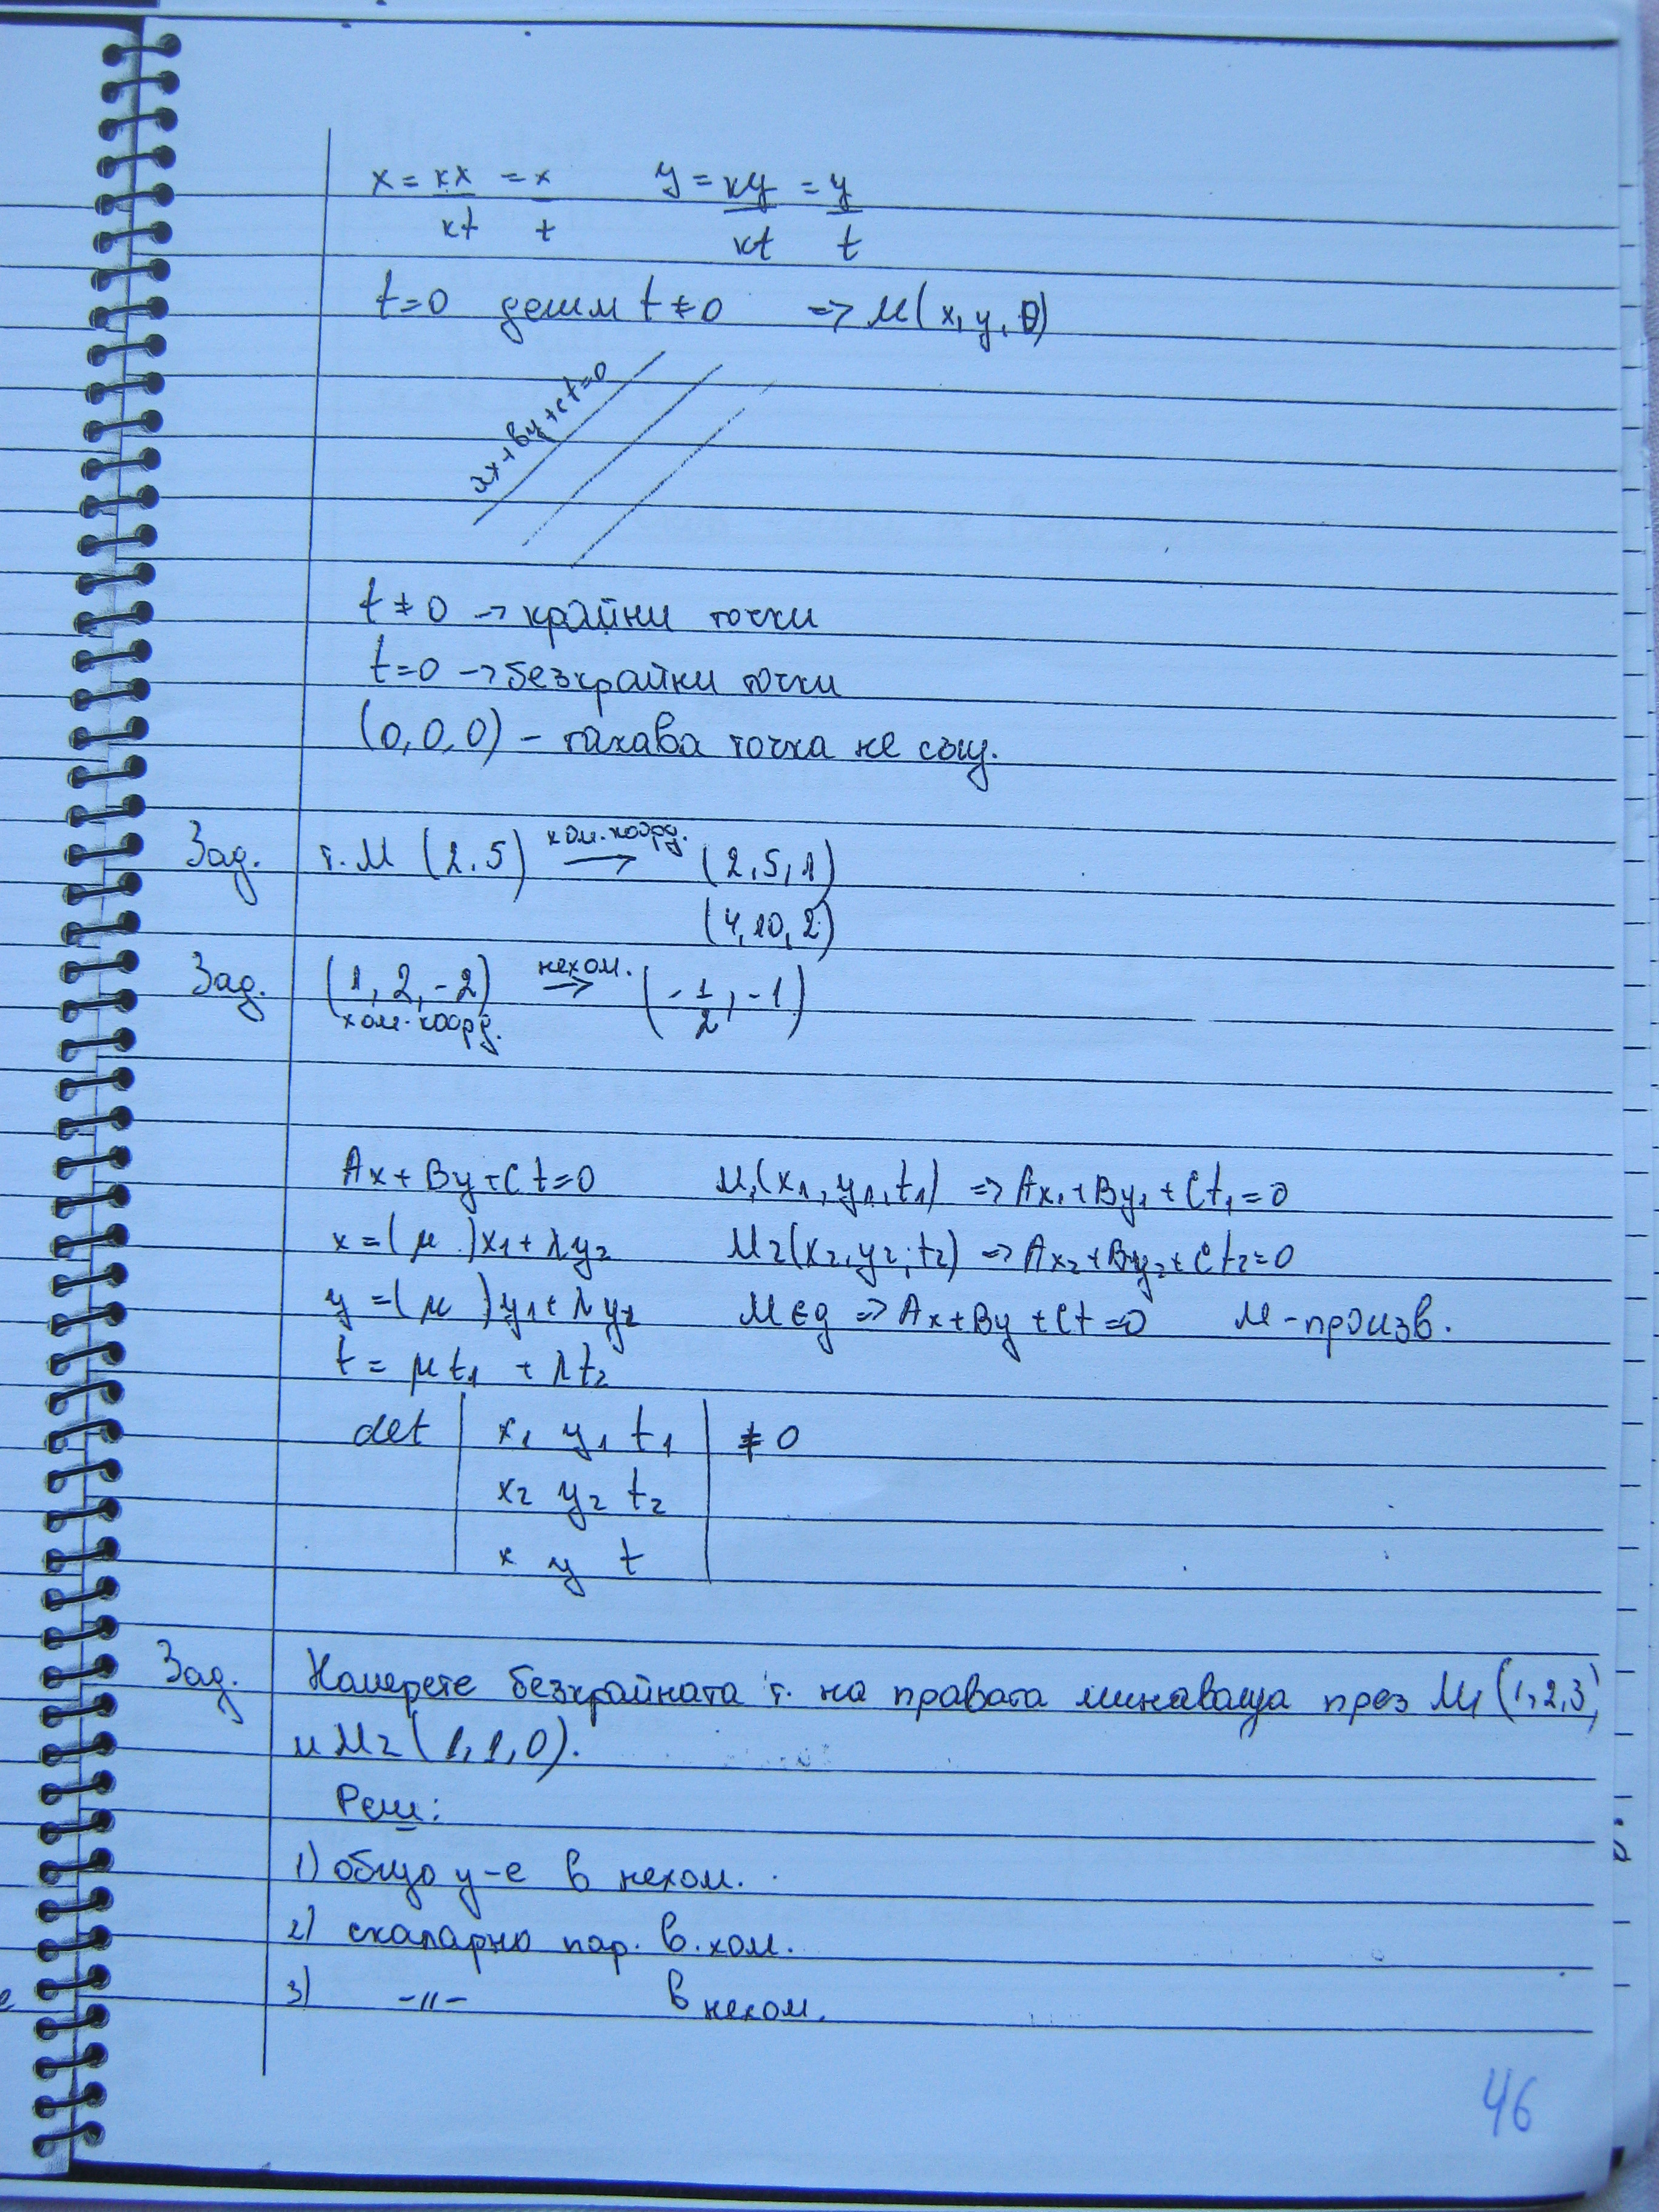 x = кx/кt = x/t   y = кy/кt = y/t
t=0 делим t≠0 => M(x, y, 0)
Ax+By+Ct=0
t≠0 -> крайни точки
t=0 -> безкрайни точки
(0,0,0) - такава точка не същ.
Зад. т. M (2,5) хом. коорд. → (2,5,1)
(4,10,2)
Зад. (1, 2, -2) нехом. → (-1/2, -1)
хом. коорд.
Ax+By+Ct=0   M₁(x₁, y₁, t₁) => Ax₁+By₁+Ct₁=0
x=(μ )x₁+λy₂   M₂(x₂, y₂, t₂) => Ax₂+By₂+Ct₂=0
y=(μ )y₁+λy₂   M∈g => Ax+By+Ct=0   M-произв.
t= μt₁ + λt₂
det | x₁ y₁ t₁ | ≠ 0
x₂ y₂ t₂
x y t
Зад. Намерете безкрайната т. на правата минаваща през M₁(1,2,3)
и M₂(1,1,0).
Реш:
1) общо у-е в нехом.
2) скаларно пар. в хом.
3) -"- в нехом.
46